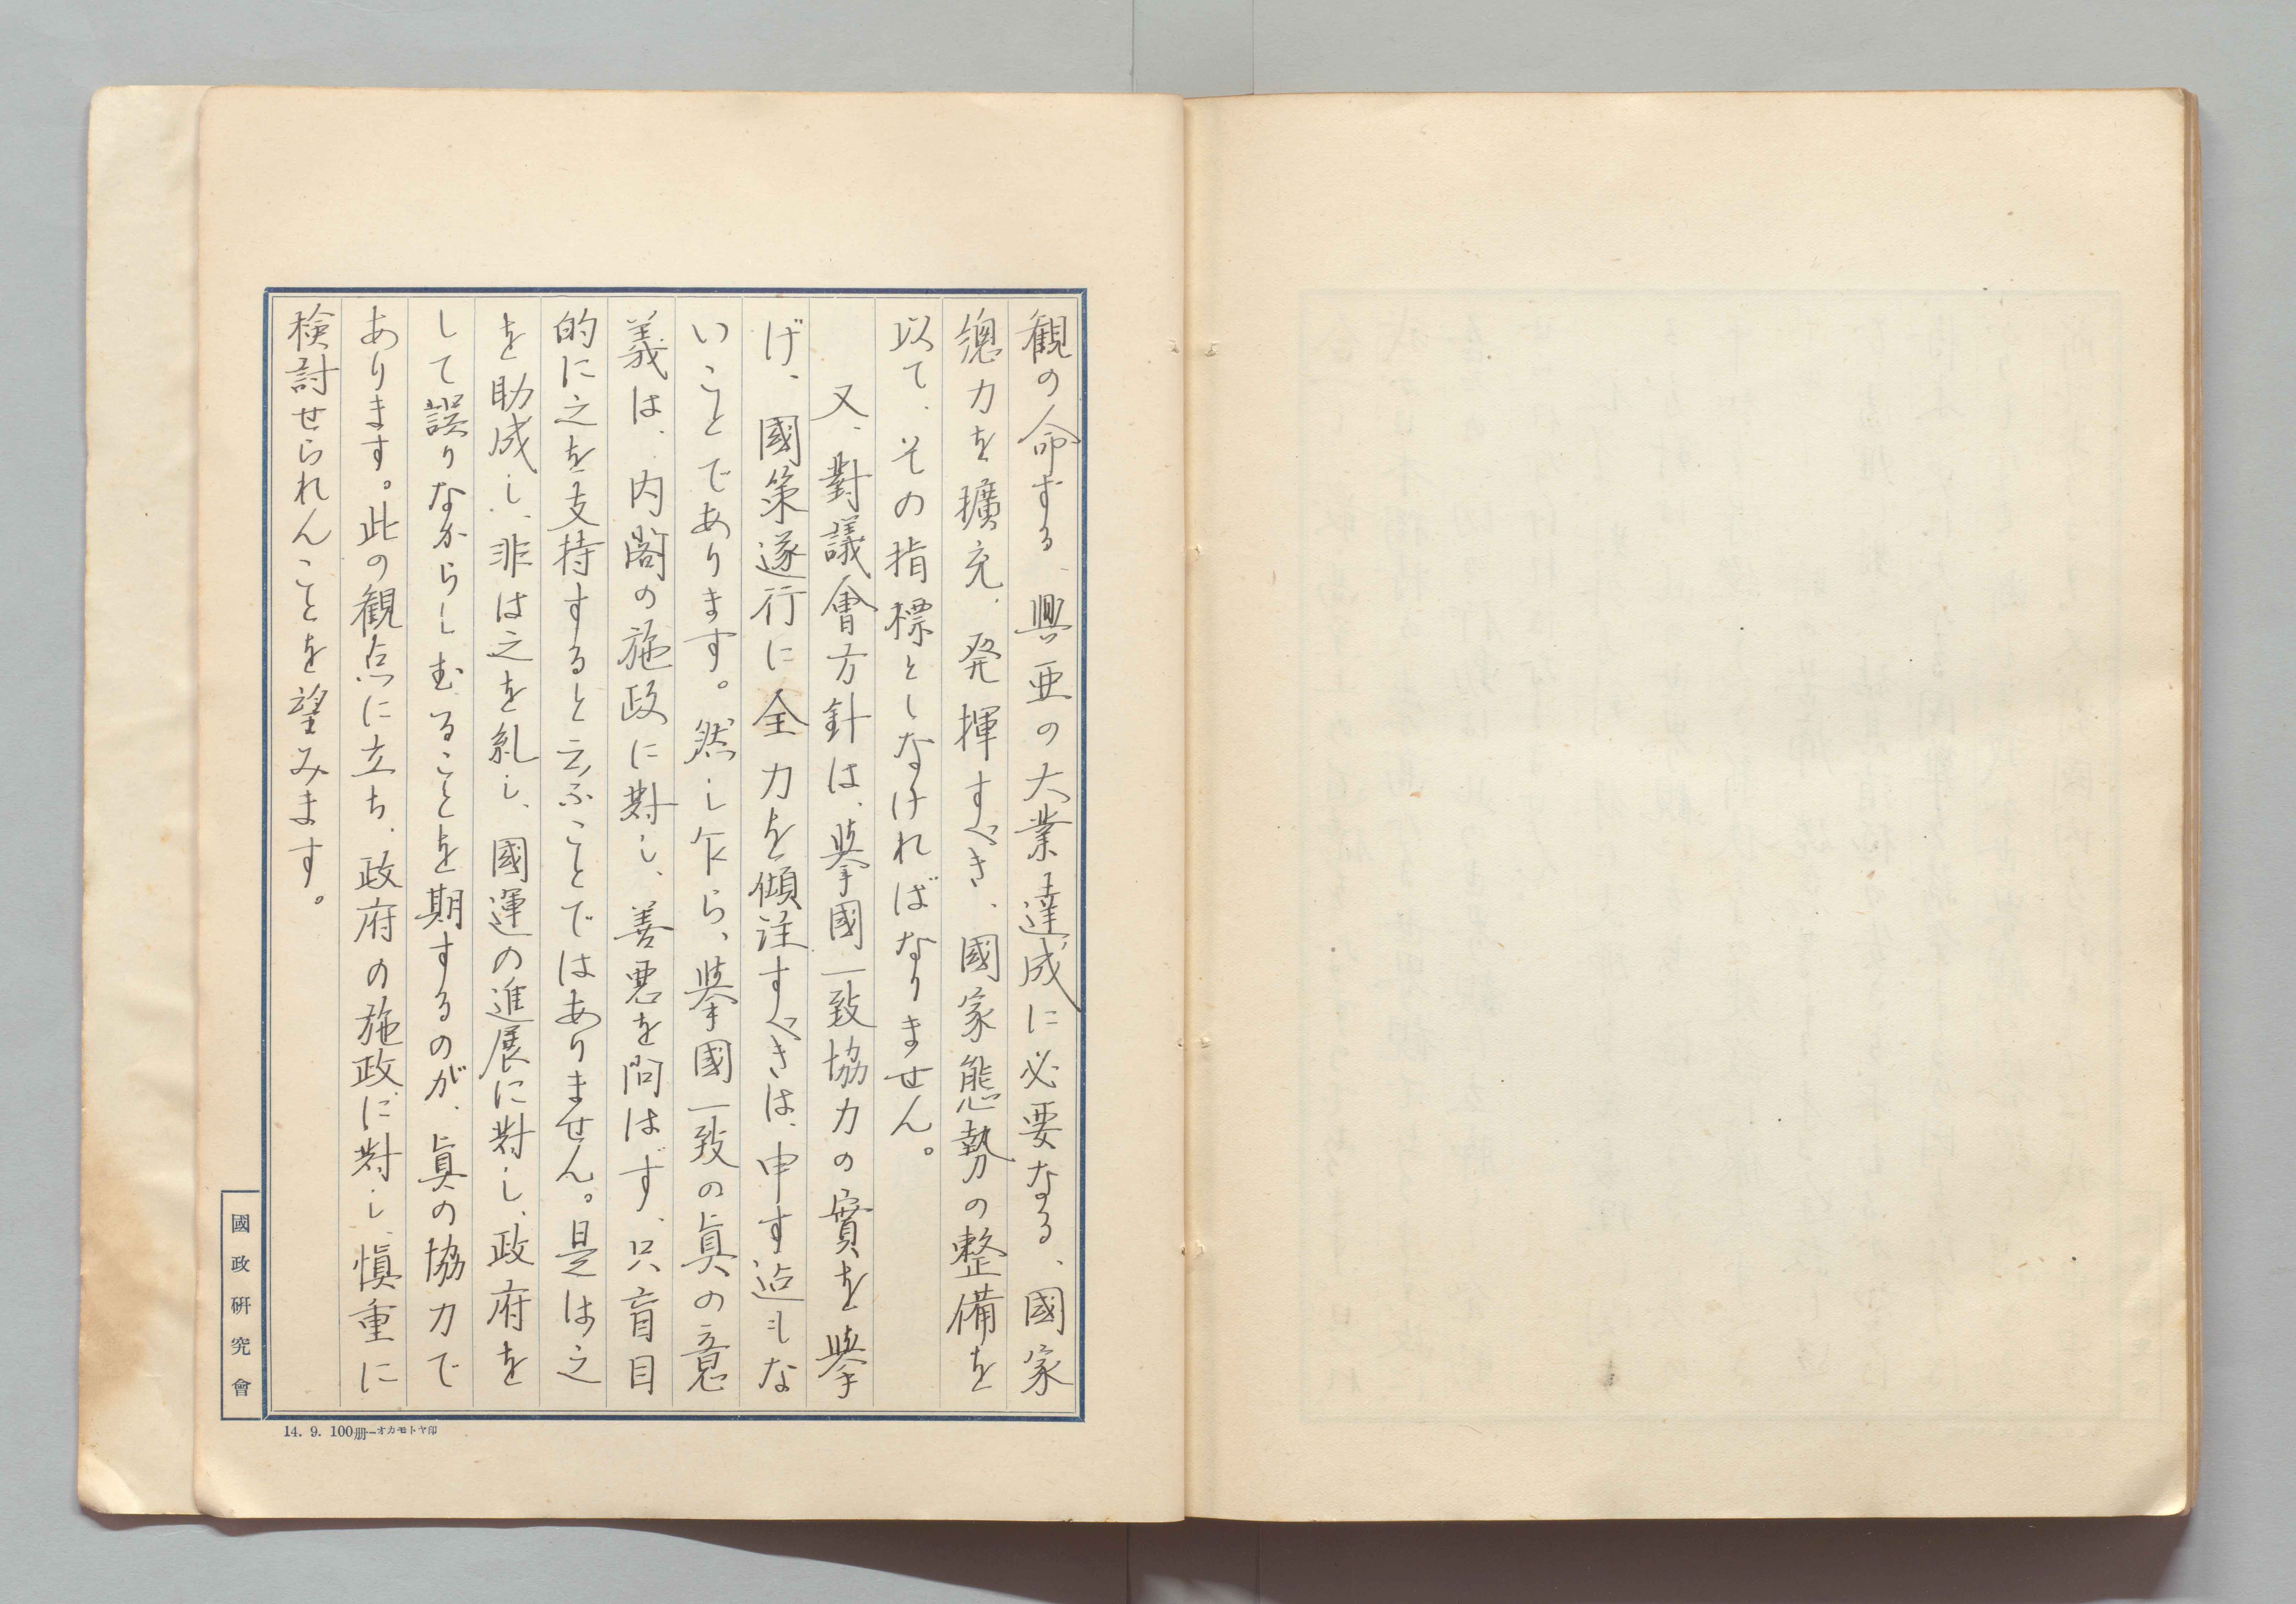 観の命ずる、興亜の大業達成に必要なる、國家
總力を擴充、発揮すべき、國家態勢の整備を
以て、その指標としなければなりません。
又、對議會方針は、擧國一致協力の實を擧
げ、國策遂行に全力を傾注すべきは、申す迄もな
いことであります。然し乍ら、擧國一致の眞の意
義は、内閣の施政に對し、善悪を問はず、只盲目
的に之を支持すると云ふことではありません。是は之
を助成し、非は之を糺し、國運の進展に對し、政府を
して誤りなからしむることを期するのが、眞の協力で
あります。此の観点に立ち、政府の施政に對し、慎重に
検討せられんことを望みます。
國政研究會
14. 9. 100册—オカモトヤ印